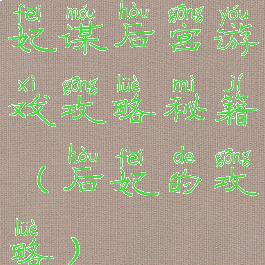 fēi móu hòu gōng yóu
妃谋后宫游
xì gōng lüè mì jí
戏攻略秘籍
hòu fēi de gōng
（后妃的攻
lüè
略）